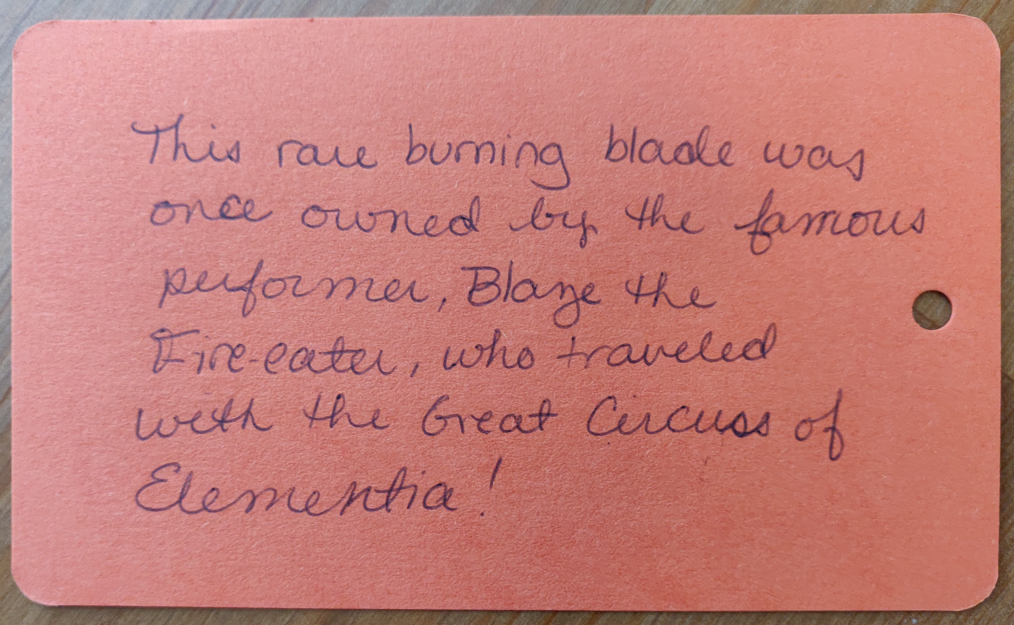 This rare burning blade was
once owned by the famous
performer, Blaze the
Fire-eater, who traveled
with the Great Circuss of
Elementia!